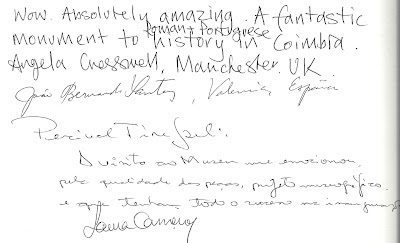 Wow. Absolutely amazing. A fantastic
monument to Roman & Portuguese history in Coimbra.
Angela Cresswell, Manchester. UK
João Bernardo Santos, Valencia, España
Percival Tirapeli.
A visita ao Museu me emocionou
pela qualidade das peças, projeto museográfico
e que tenham todo o sucesso na inauguração